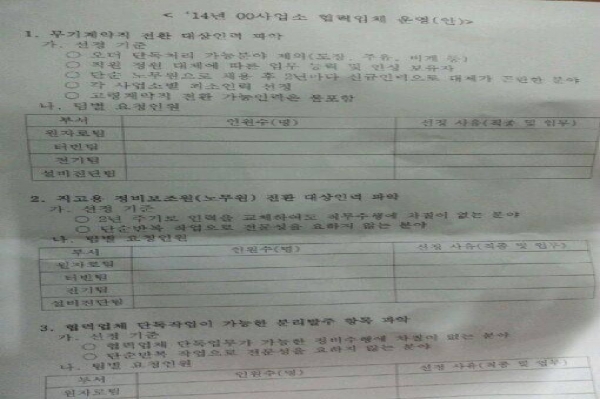 < '14년 00사업소 협력업체 운영(안)>
1. 무기계약직 전환 대상인력 파악
가. 선정 기준
○ 오더 단독처리 가능분야 제외(도장, 주유, 비계 등)
○ 직원 정원 대체에 따른 업무 능력 및 인성 보유자
○ 단순 노무원으로 채용 후 2년마다 신규인력으로 대체가 곤란한 분야
○ 각 사업소별 최소인력 선정
○ 고령계약직 전환 가능인력은 불포함
나. 팀별 요청인원
부서 인원수(명) 선정 사유(직종 및 업무)
원자로팀
터빈팀
전기팀
설비진단팀
2. 직고용 정비보조원(노무원) 전환 대상인력 파악
가. 선정 기준
○ 2년 주기로 인력을 교체하여도 직무수행에 차질이 없는 분야
○ 단순반복 작업으로 전문성을 요하지 않는 분야
나. 팀별 요청인원
부서 인원수(명) 선정 사유(직종 및 업무)
원자로팀
터빈팀
전기팀
설비진단팀
3. 협력업체 단독작업이 가능한 분리발주 항목 파악
가. 선정 기준
○ 협력업체 단독업무가 가능한 정비수행에 차질이 없는 분야
○ 단순반복 작업으로 전문성을 요하지 않는 분야
나. 팀별 요청인원
부서 인원수(명) 선정 사유(직종 및 업무)
원자로팀